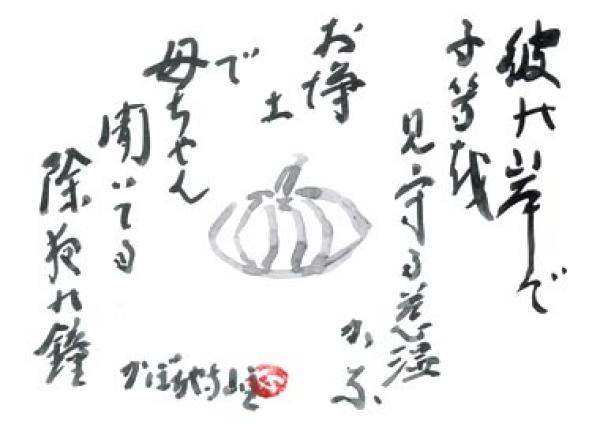 彼の岸で
子等越
見守る慈温
かな
お浄
土
で
母ちゃん
聞いてる
除夜の鐘
かぼちゃ